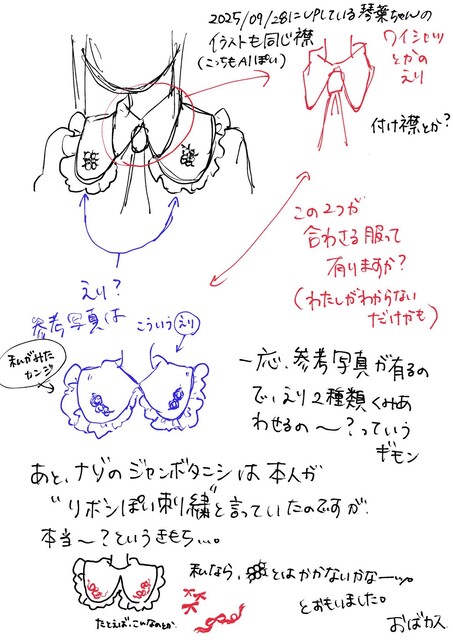 2025/09/28にUPしている琴葉ちゃんの
イラストも同じ襟
(こっちもAIぽい)
ワイシャツ
とかの
えり
付け襟とか?
この2つが
合わさる服って
有りますか?
(わたしがわからない
だけかも)
えり?
参考写真は
こういうえり
私がみた
カンジ
一応、参考写真が有るの
で、えり2種類くみあ
わせるの〜?っていう
ギモン
あと、ナゾのジャンボタニシは本人が
"リボンぽい刺繍"と言っていたのですが、
本当〜?というきもち…。
私なら、とはかかないかなーッ。
とおもいました。
たとえば、こんなのとか
おばカス